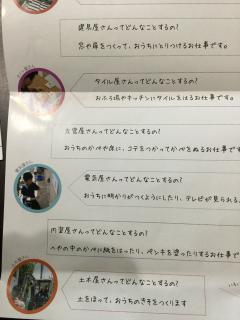 建具屋さんってどんなことするの?
窓や扉をつくって、おうちにとりつけるお仕事です。
タイル屋さんってどんなことするの?
おふろ場やキッチンにタイルをはるお仕事です。
左官屋さんってどんなことするの?
おうちのかべや床に、コテをつかってかべをぬるお仕事です
電気屋さんってどんなことするの?
おうちに明かりがつくようにしたり、テレビが見られる、
内装屋さんってどんなことするの?
へやの中のかべに紙をはったり、ペンキを塗ったりするお仕事で
土木屋さんってどんなことするの?
土をほって、おうちのきそをつくります